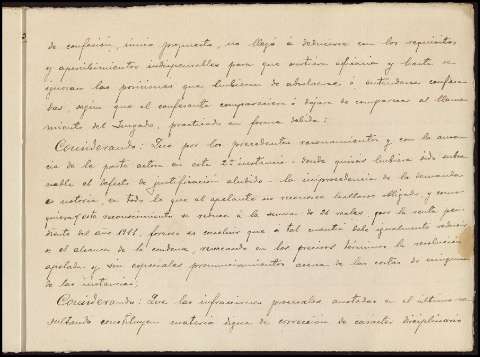 de confesión, único propuesto, no llegó á deducirse con los requisitos
y apercibimientos indispensables para que surtiera eficacia y hasta se
ignoran las posiciones que hubieran de absolverse ó entenderse confesa-
das, según que el confesante compareciera ó dejara de comparecer al llama-
miento del Juzgado, practicado en forma debida:
Considerando: Que por los precedentes razonamientos y con la ausen-
cia de la parte actora en esta 2ª instancia - donde quizás hubiera sido subsa-
nable el defecto de justificación aludido - la improcedencia de la demanda
es notoria, en todo lo que el apelante no reconoce hallarse obligado, y como-
quiera que este reconocimiento se reduce á la suma de 26 reales, por la renta pen-
diente del año 1911, forzoso es concluir que á tal cuantía debe igualmente reducir-
se el alcance de la condena, revocando en los precisos términos la resolución
apelada y sin especiales pronunciamientos acerca de las costas de ninguna
de las instancias;
Considerando: Que las infracciones procesales anotadas en el último re-
sultando constituyen materia digna de corrección de carácter disciplinario